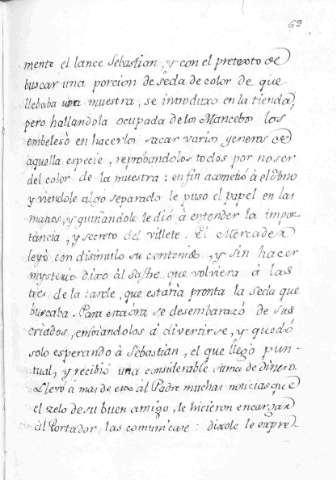 63
mente el lance Sebastian, y con el pretexto de
buscar una porcion de seda de color de que
llebaba una muestra, se introduxo en la tienda,
pero hallandola ocupada de los Mancebos los
embelesò en hacerlos sacar varios generos de
aquella especie, reprobandolos todos por no ser
del color de la muestra: en fin acometió á el
y viendole algo separado le puso el papel en las
manos, y guiñandole le dió á entender la impor
táncia, y secreto del villete. El Mercader
leyó con disimulo su contenido, y sin hacer
mysterio dixo al Sastre que volviera á las
tres de la tarde, que estaria pronta la seda que
buscaba. Para esta ora se desembarazó de sus
criados, embiandolos á divertirse, y quedó
solo esperando à Sebastian, el que llegó pun-
tual, y recibió una considerable suma de dinero.
Llevó á mas de esto al Padre muchas noticias que
el zelo de su buen amigo, le hicieron encargar
al Portador, las comunicase: dixole le expre